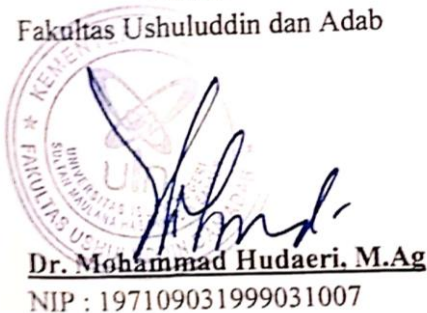 Fakultas Ushuluddin dan Adab
Dr. Mohammad Hudaeri, M.Ag
NIP : 197109031999031007